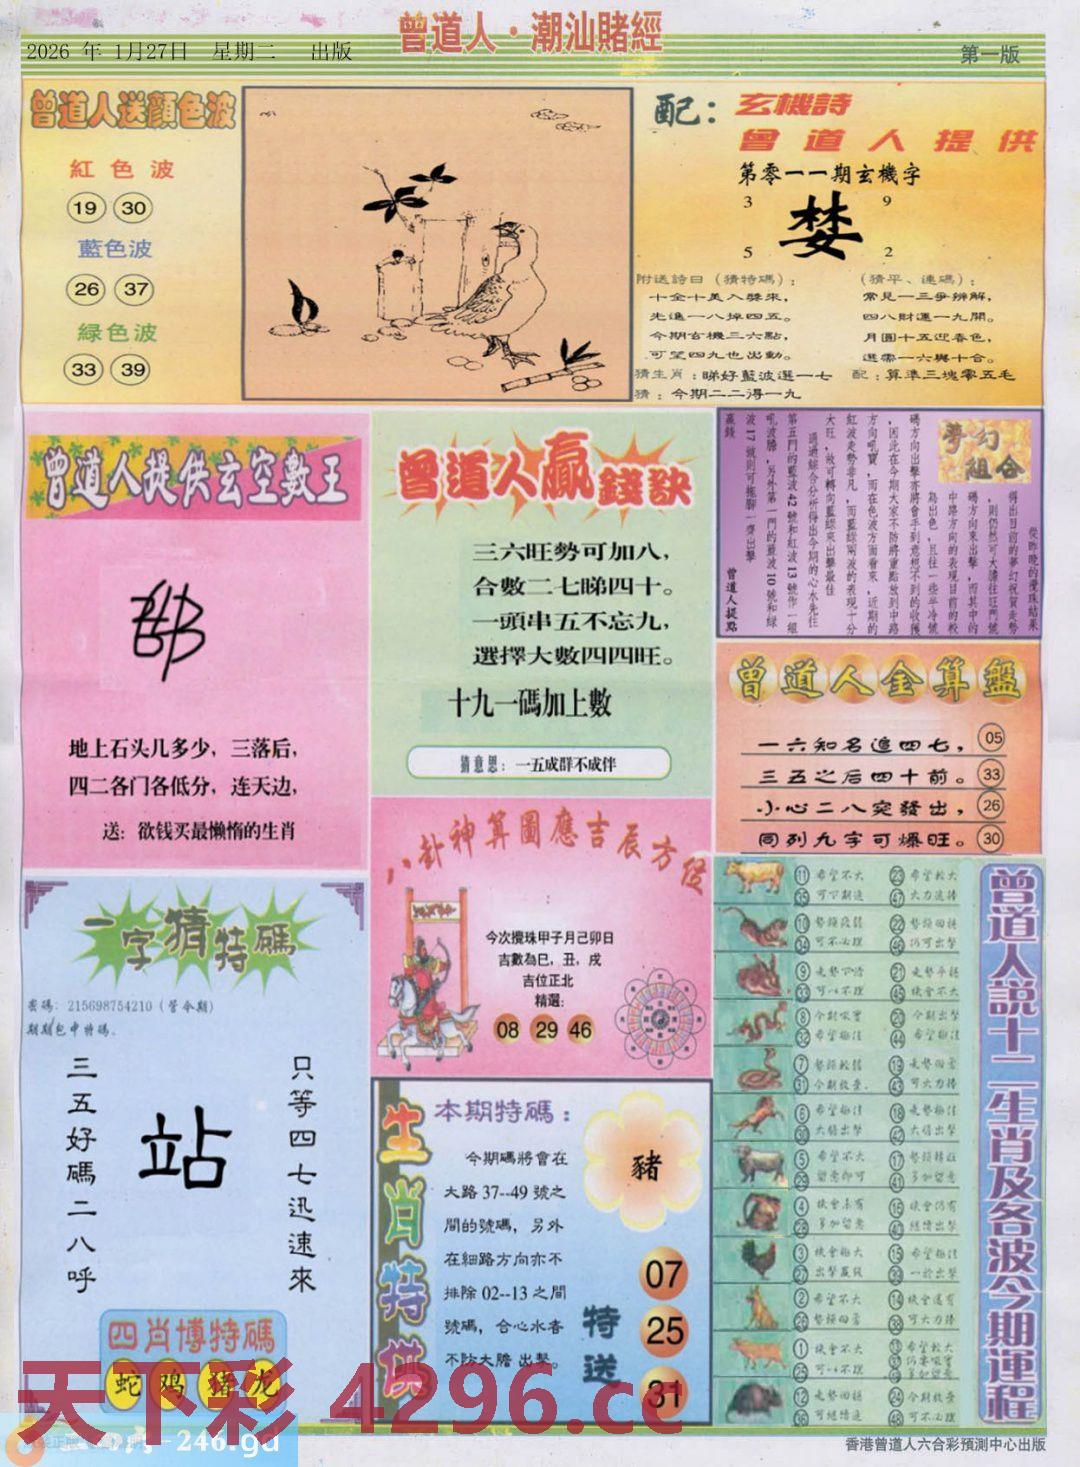 曾道人·潮汕賭經
2026 年 1月27日 星期二 出版
第一版
曾道人送顏色波
紅色波
19 30
藍色波
26 37
緑色波
33 39
配：玄機詩
曾道人提供
第零一一期玄機字
3 9
婪
5 2
附送詩曰（猜特碼）：
十全十美入獎來，
先進一八掉四五。
今期玄機三六點，
可望四九也出動。
（猜平、連碼）：
常見一三爭辨解，
四八財運一九開。
月圓十五迎春色，
選零一六與十合。
猜生肖：睇好藍波選一七
配：算準三塊零五毛
猜：今期二二得一九
曾道人提供玄空數王
地上石头几多少，三落后，
四二各门各低分，连天边，
送：欲钱买最懒惰的生肖
曾道人贏錢訣
三六旺勢可加八，
合數二七睇四十。
一頭串五不忘九，
選擇大數四四旺。
十九一碼加上數
猜意思：一五成群不成伴
夢幻組合
從昨晚的攪珠結果
得出目前的夢幻祝賀走勢
，則仍然可大膽往旺門號
碼方向來出擊，而其中的
中路方向的表現目前的較
為出色，且往一些半冷號
碼方向出擊亦將會手到意想不到的收獲
，因此在今期大家不防將重點放到中路
方向吼寶，而在色波方面看來，近期的
紅波走勢非凡，而藍綠兩波的表現十分
大旺，故可轉向藍綠來出擊最佳
通過綜合分析得出今期的心水先往
第五門的藍波42號和紅波13號作一組
吼波膽，另外第一門的藍波10號和綠
波17號則可拖腳一齊出擊
贏錢
曾道人提點
曾道人金算盤
一六知名追四七， 05
三五之后四十前。 33
小心二八突發出， 26
同列九字可爆旺。 30
八卦神算圖應吉辰方位
今次攪珠甲子月己卯日
吉數為巳，丑，戌
吉位正北
精選：
08 29 46
一字猜特碼
密碼：215698754210（管令期）
期期包中特碼。
三五好碼二八呼
站
只等四七迅速來
四肖博特碼
蛇 鸡 猪 虎
生肖特供
本期特碼：
今期碼將會在
大路37--49號之
間的號碼，另外
在細路方向亦不
排除02--13之間
號碼，合心水者
不防大膽出擊。
豬
特送
07
25
31
曾道人説十二生肖及各波今期運程
11 希望不大 23 希望較大
35 可下期進 47 大力追捧
10 勢頭疲弱 22 勢頭回穩
34 可不必理 46 仍可出擊
9 走勢下滑 21 走勢平穩
33 可以不理 45 機會不大
8 今期吼寶 20 今期出擊
32 希望極佳 44 希望極佳
7 勢頭較弱 19 走勢回勇
31 今期收登. 43 可大力捧
6 希望極佳 18 走勢極佳
30 大膽出擊 42 大膽出擊
5 希望不大 17 勢頭轉旺
29 留意即可 41 多加留意
4 機會未有 16 機會仍有
28 多加留意 40 繼續出擊
3 機會極大 15 希望極佳
27 出擊贏錢 39 一於出擊
2 希望不大 14 機會還有
26 勢頭回勇 38 可大力捧
1 希望不大 13 希望較大
25 可以不理
12 走勢回穩 24 今期收登
36 可繼續追 48 可不必理
天下彩 4296.cc
-246.gd
香港曾道人六合彩預測中心出版